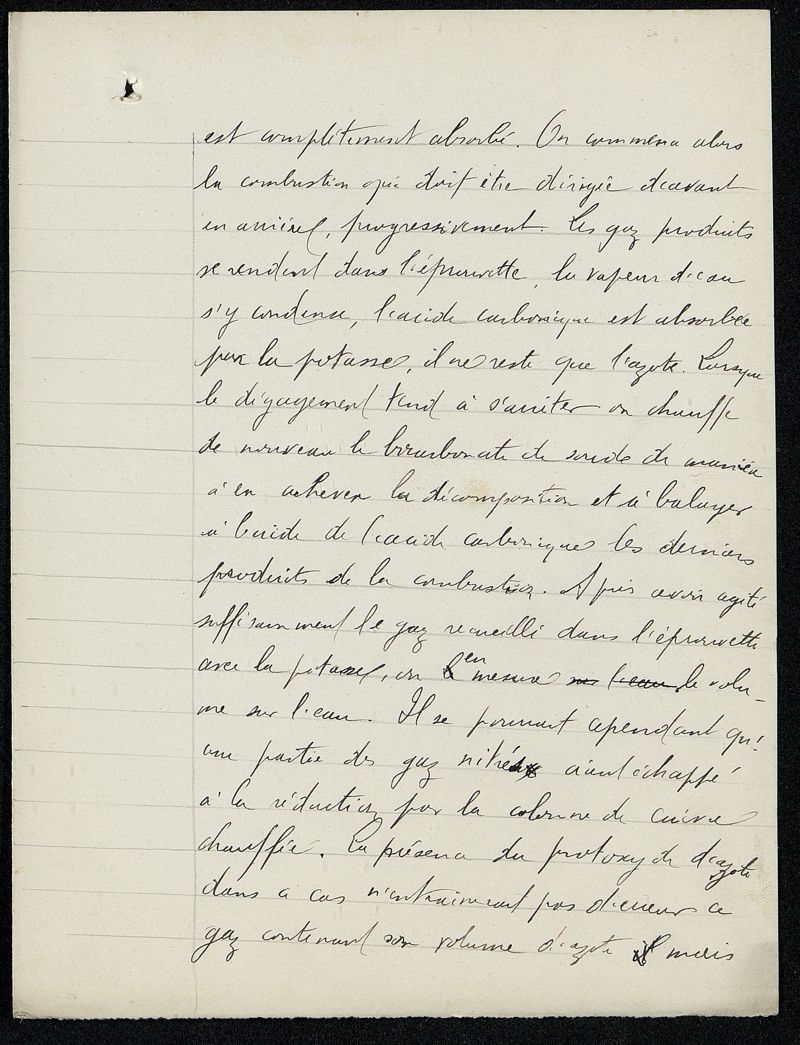 est complètement absorbé. On commence alors
la combustion qui doit être dirigée d'avant
en arrière, progressivement. Les gaz produits
se rendent dans l'éprouvette, la vapeur d'eau
s'y condense, l'acide carbonique est absorbée
par la potasse, il ne reste que l'azote. Lorsque
le dégagement tend à s'arrêter on chauffe
de nouveau le bicarbonate de soude de manière
à en achever la décomposition et à balayer
à l'aide de l'acide carbonique les derniers
produits de la combustion. Après avoir agité
suffisamment le gaz recueilli dans l'éprouvette
avec la potasse, on en mesure sur l'eau le volu-
me sur l'eau. Il se pourrait cependant qu'
une partie des gaz nitreux aient échappé
à la réduction par la colonne de cuivre
chauffée. La présence du protoxyde d'azote
dans ce cas n'entraînerait pas d'erreur ce
gaz contenant son volume d'azote mais